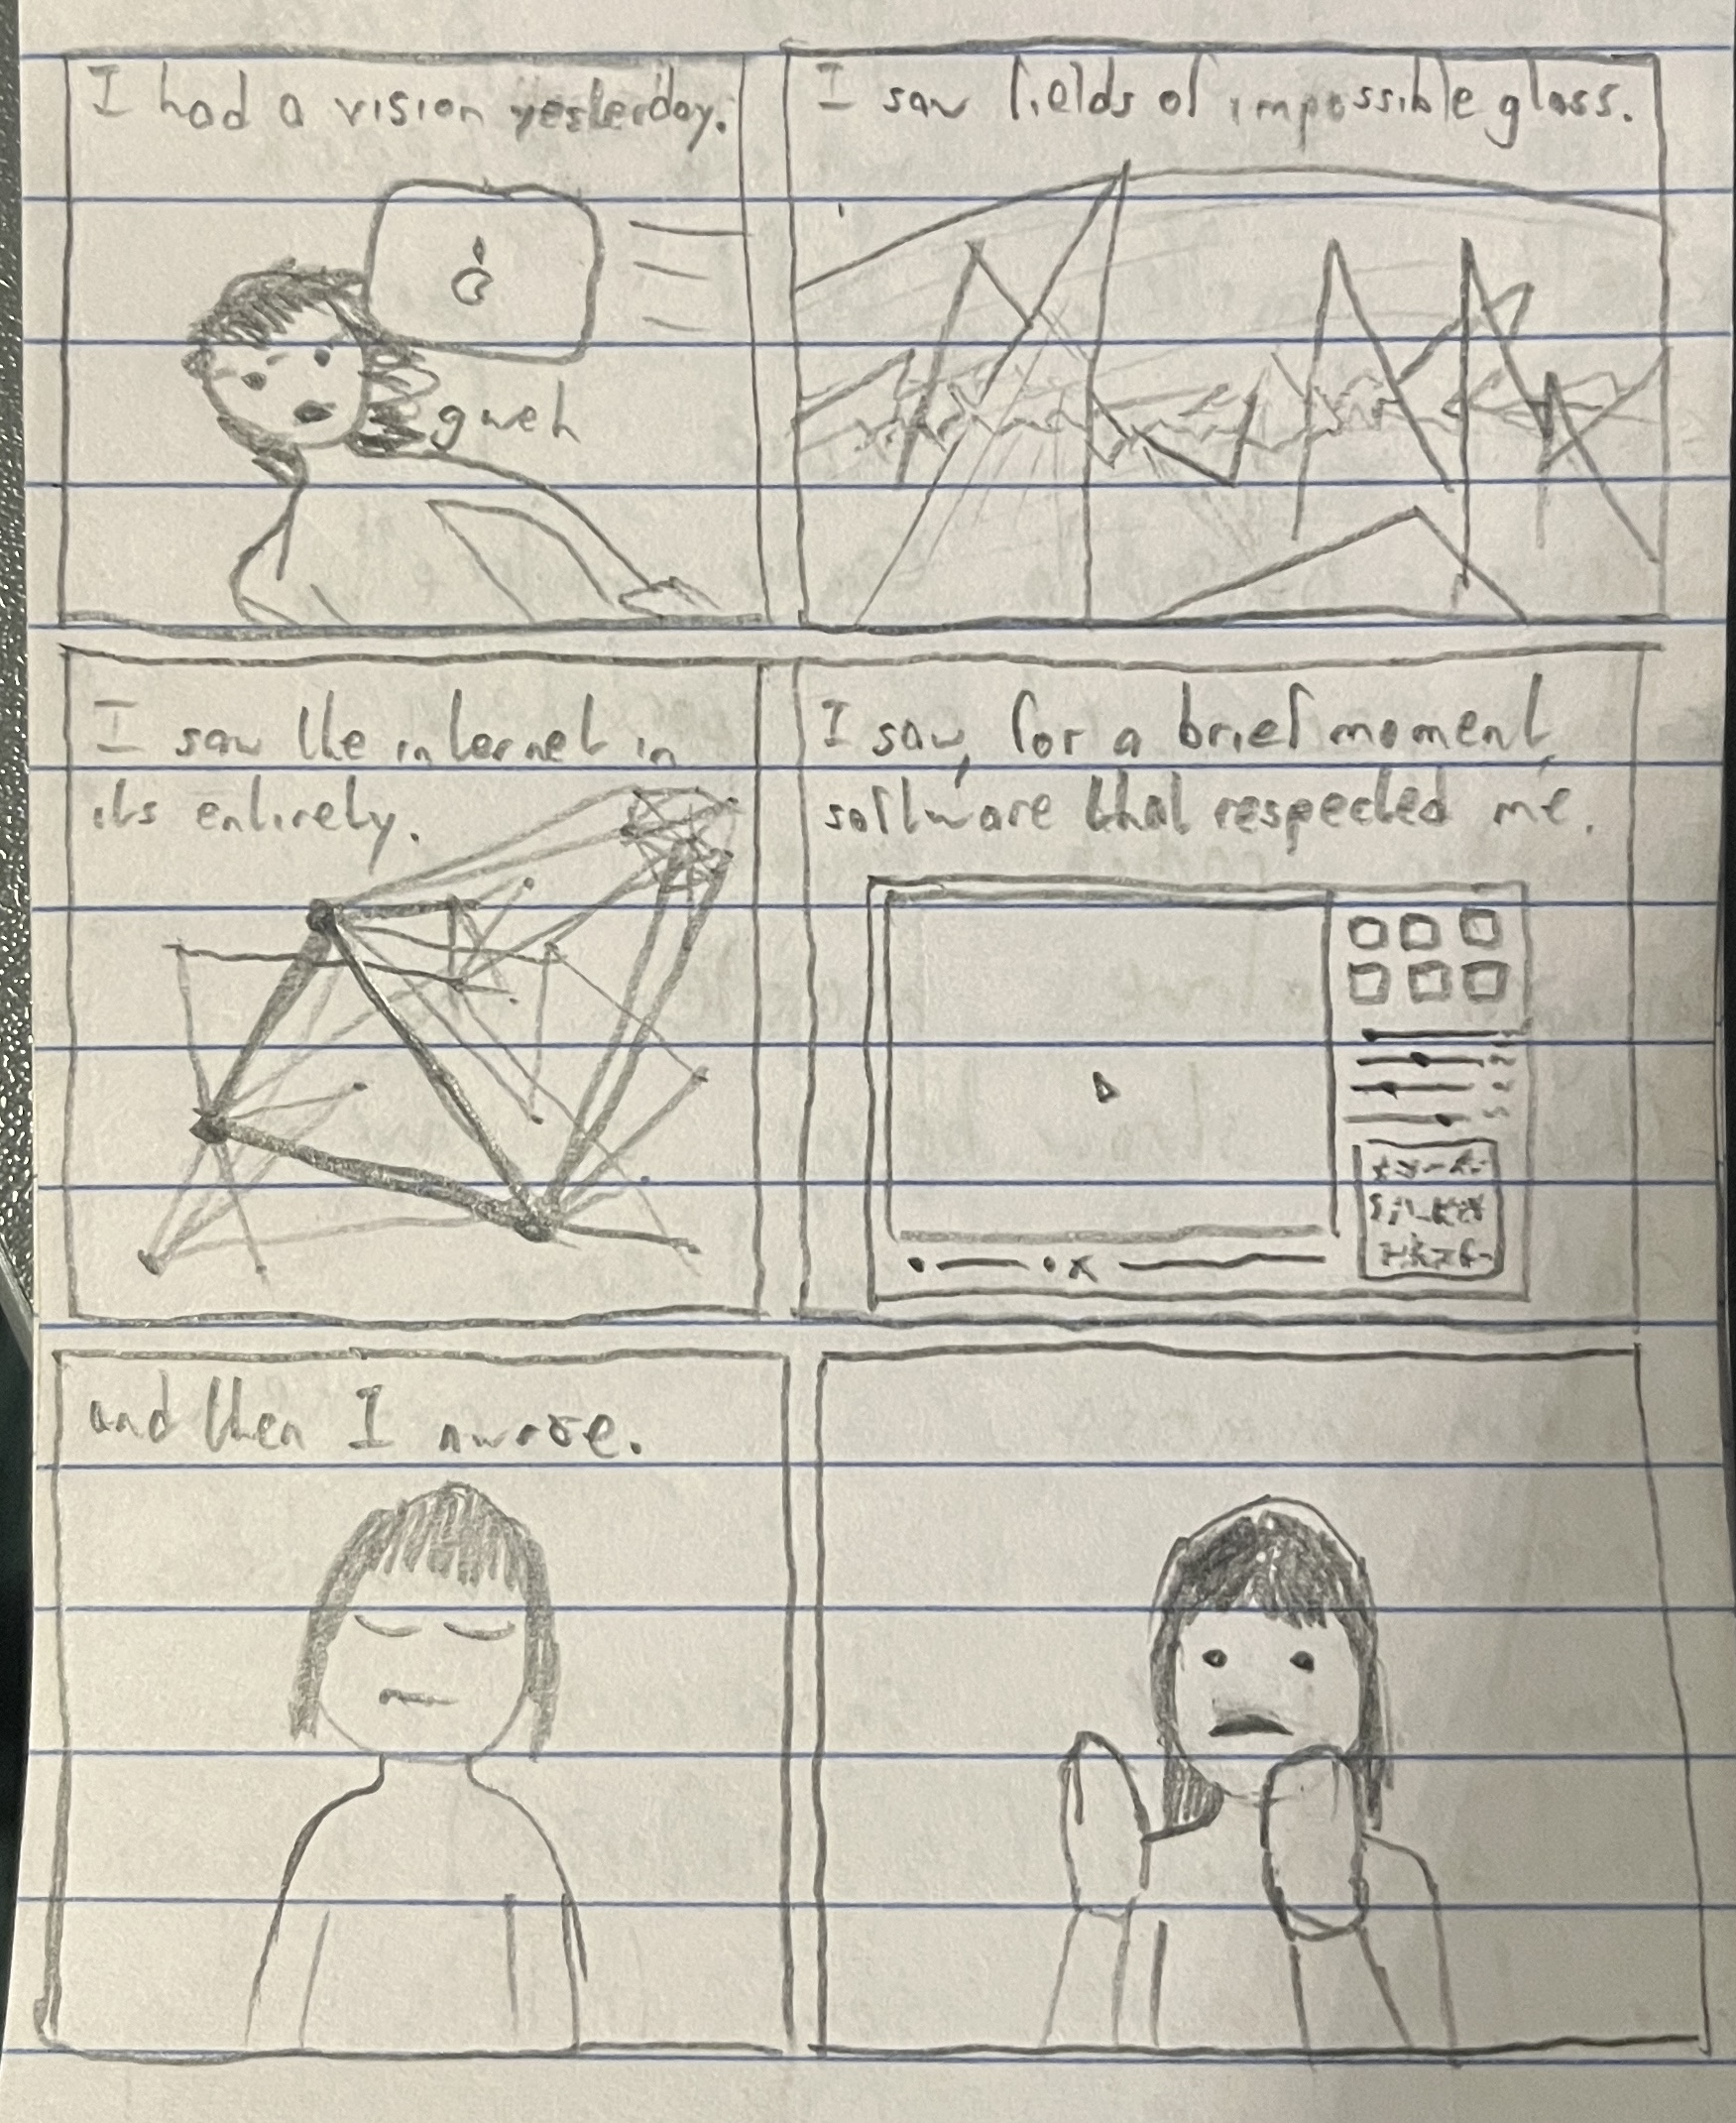 I had a vision yesterday.
gweh
I saw fields of impossible glass.
I saw the internet in
its entirety.
I saw, for a brief moment,
software that respected me.
and then I awoke.